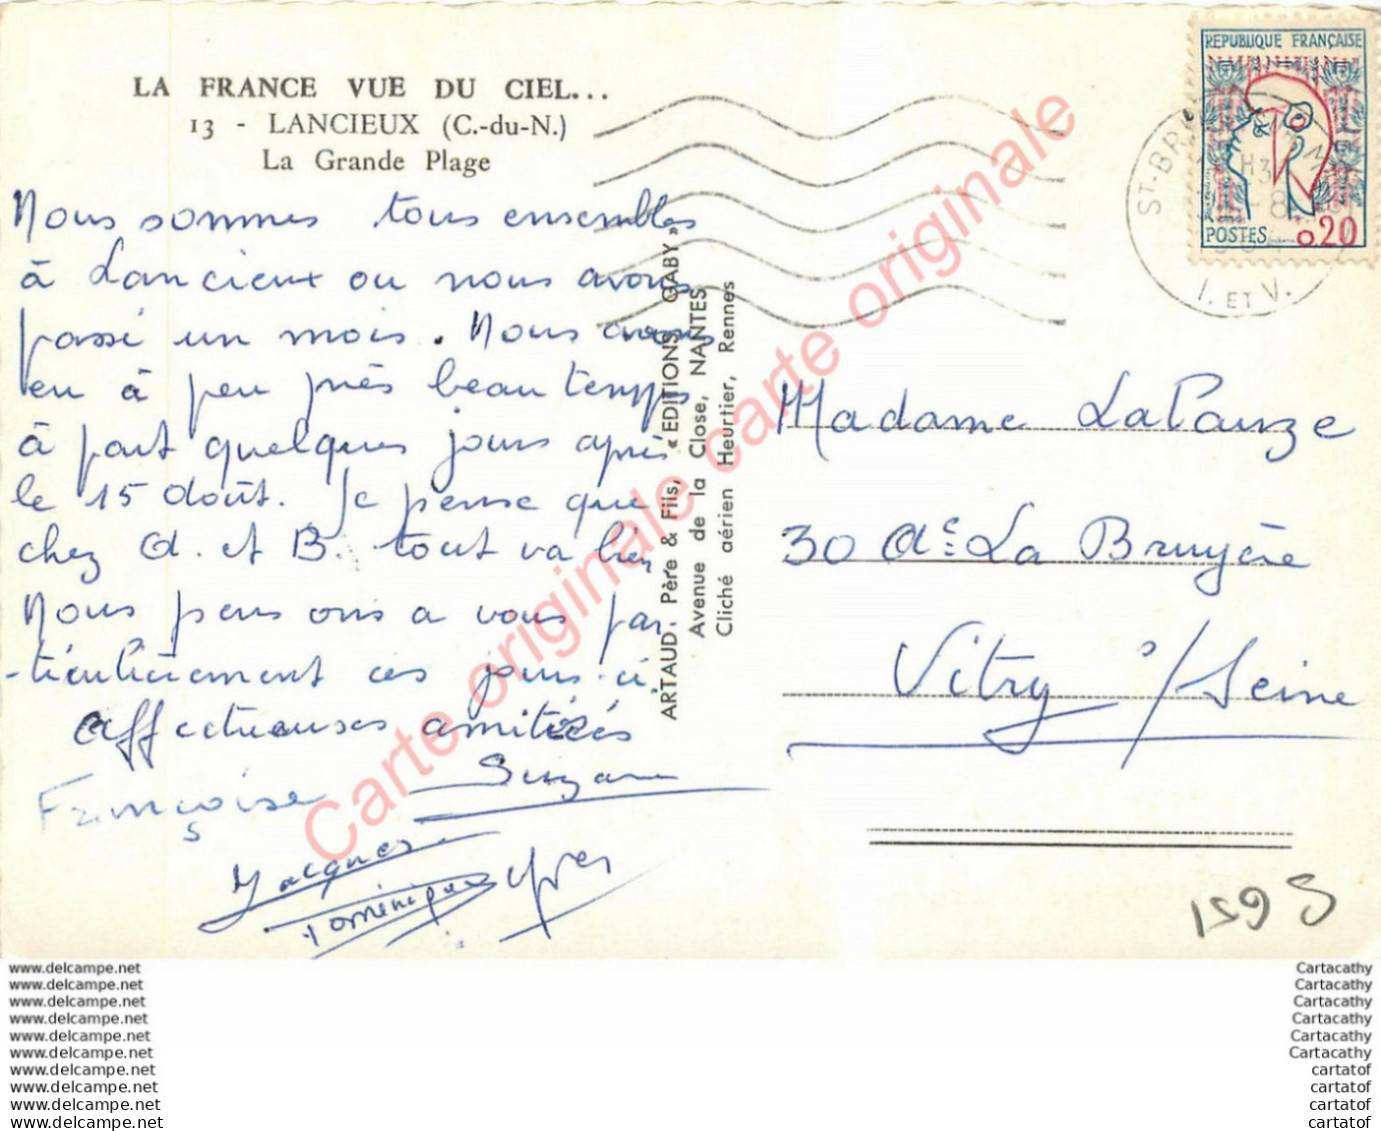 LA FRANCE VUE DU CIEL...
13 - LANCIEUX (C.-du-N.)
La Grande Plage
Nous sommes tous ensembles
à Lancieux ou nous avons
passé un mois. Nous avons
eu à peu près beau temps
à part quelques jours après
le 15 août. Je pense que
chez A. et B. tout va bien
Nous pensons a vous par-
-ticulièrement ces jours-ci.
Affectueuses amitiés
Suzanne
Françoise
Jacques
Dominique Yves
ARTAUD Père & Fils, « EDITIONS GABY »
Avenue de la Close, NANTES
Cliché aérien Heurtier, Rennes
REPUBLIQUE FRANÇAISE
POSTES 0,20
I. ET V.
Madame LaPauze
30 La Bruyère
Vitry s/Seine
Carte originale carte originale
www.delcampe.net
www.delcampe.net
www.delcampe.net
www.delcampe.net
www.delcampe.net
www.delcampe.net
www.delcampe.net
www.delcampe.net
www.delcampe.net
www.delcampe.net
Cartacathy
Cartacathy
Cartacathy
Cartacathy
Cartacathy
Cartacathy
cartatof
cartatof
cartatof
cartatof